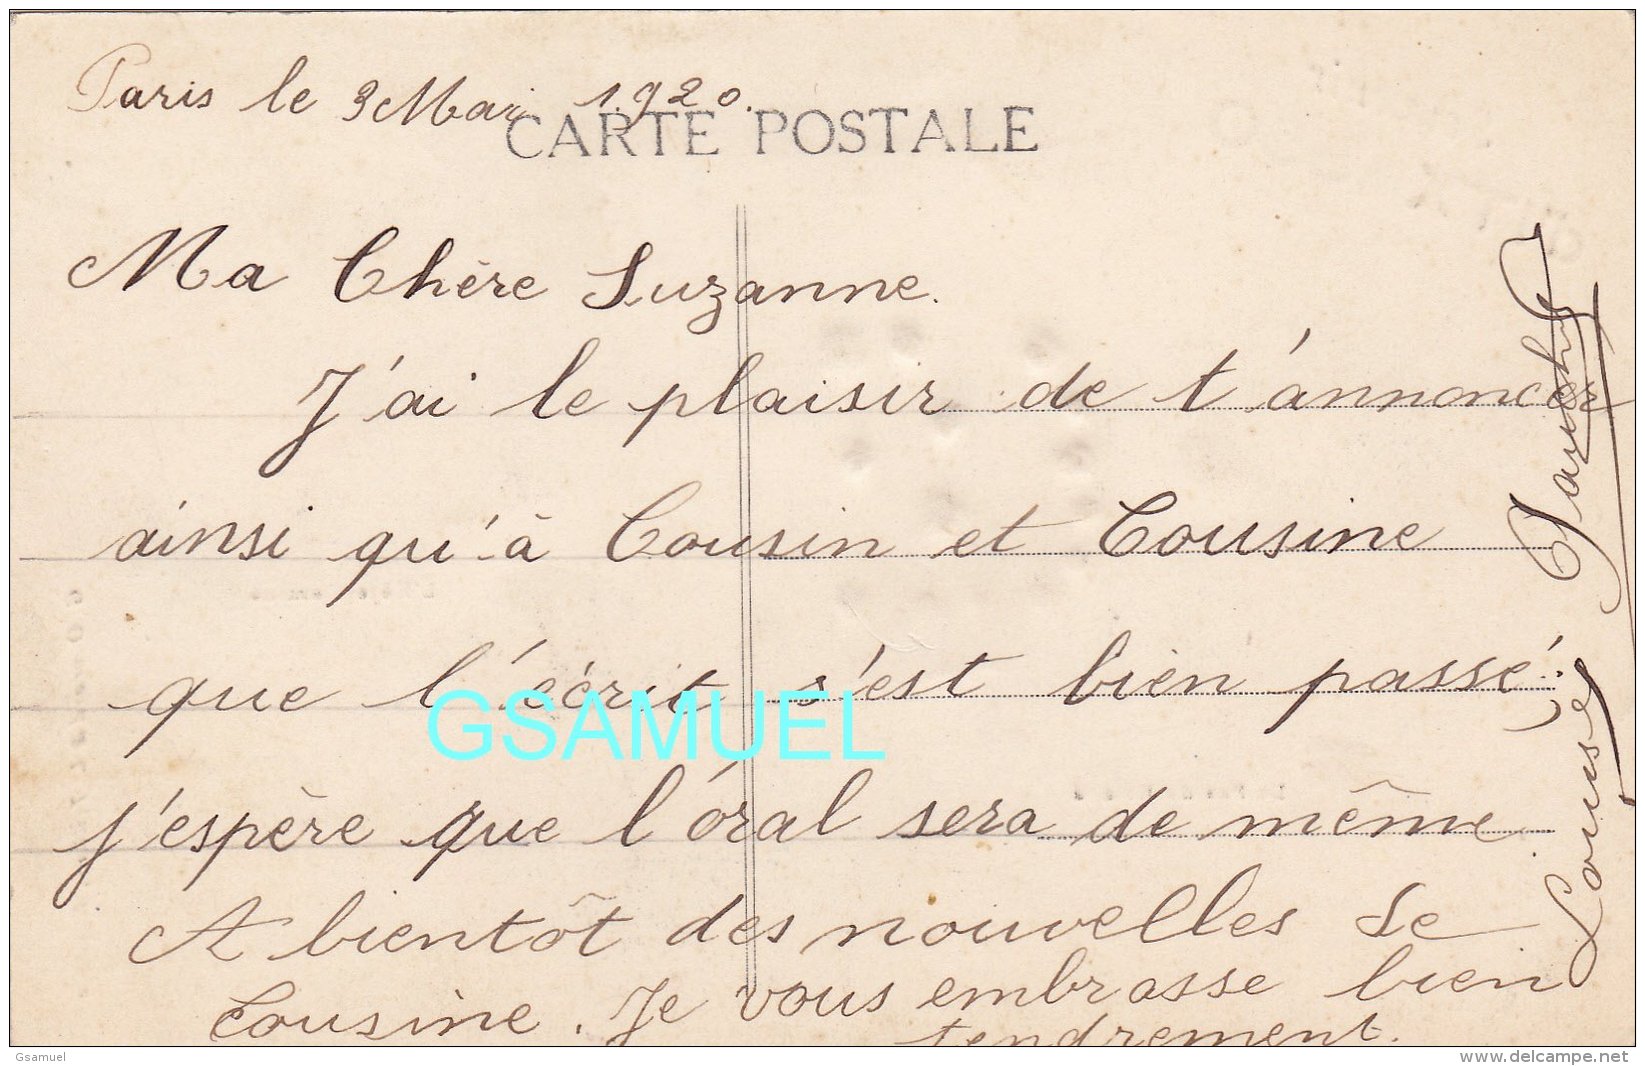 Paris le 9 Mai 1.920.
CARTE POSTALE
Ma Chère Suzanne.
J'ai le plaisir de t'annoncer
ainsi qu'à Cousin et Cousine
que l'écrit s'est bien passé;
GSAMUEL
j'espère que l'oral sera de même
A bientôt des nouvelles de
Cousine. Je vous embrasse bien
tendrement.
Louise
Gsamuel
www.delcampe.net